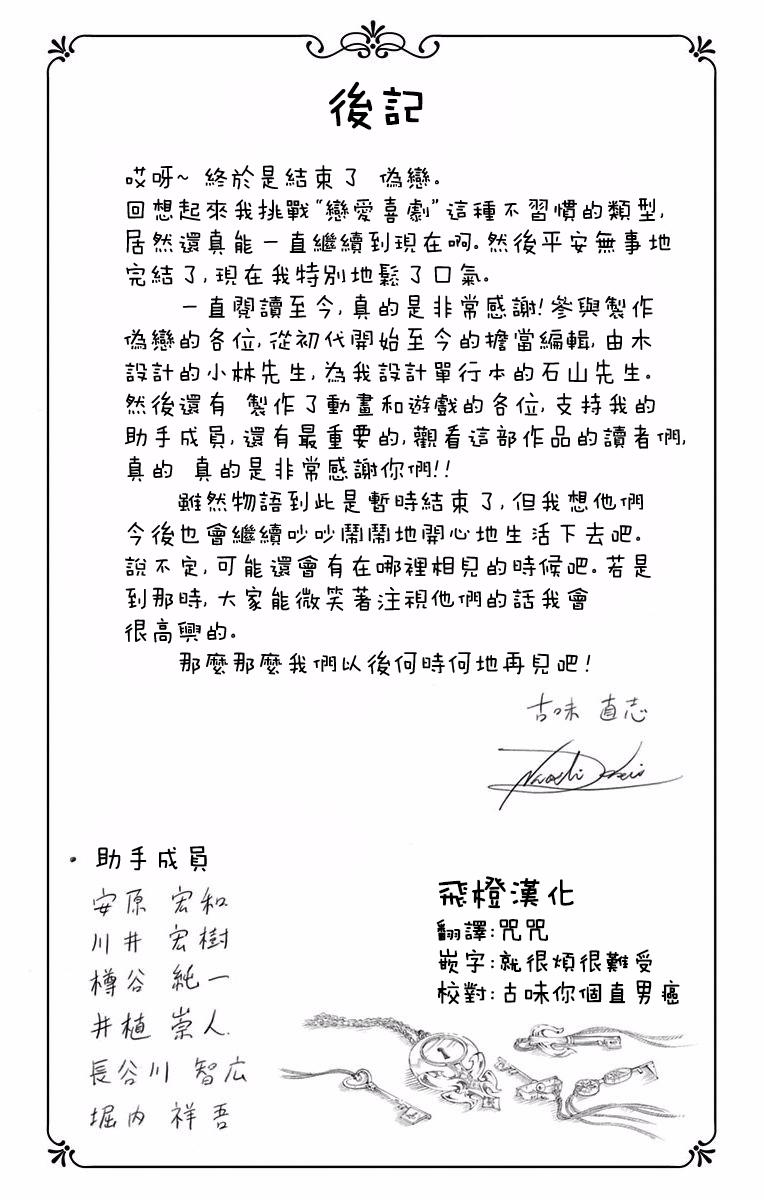 後記
哎呀~ 終於是結束了 偽戀.
回想起來我挑戰“戀愛喜劇”這種不習慣的類型,
居然還真能一直繼續到現在啊.然後平安無事地
完結了,現在我特別地鬆了口氣.
一直閱讀至今,真的是非常感謝!參與製作
偽戀的各位,從初代開始至今的擔當編輯,由木
設計的小林先生,為我設計單行本的石山先生.
然後還有 製作了動畫和遊戲的各位,支持我的
助手成員,還有最重要的,觀看這部作品的讀者們,
真的 真的是非常感謝你們!!
雖然物語到此是暫時結束了,但我想他們
今後也會繼續吵吵鬧鬧地開心地生活下去吧.
說不定,可能還會有在哪裡相見的時候吧.若是
到那時,大家能微笑著注視他們的話我會
很高興的.
那麼那麼我們以後何時何地再見吧!
古味 直志
Naoshi Komi
・助手成員
安原 宏和
川井 宏樹
樽谷 純一
井植 崇人.
長谷川 智広
堀内 祥吾
飛橙漢化
翻譯:咒咒
嵌字:就很煩很難受
校對:古味你個直男癌